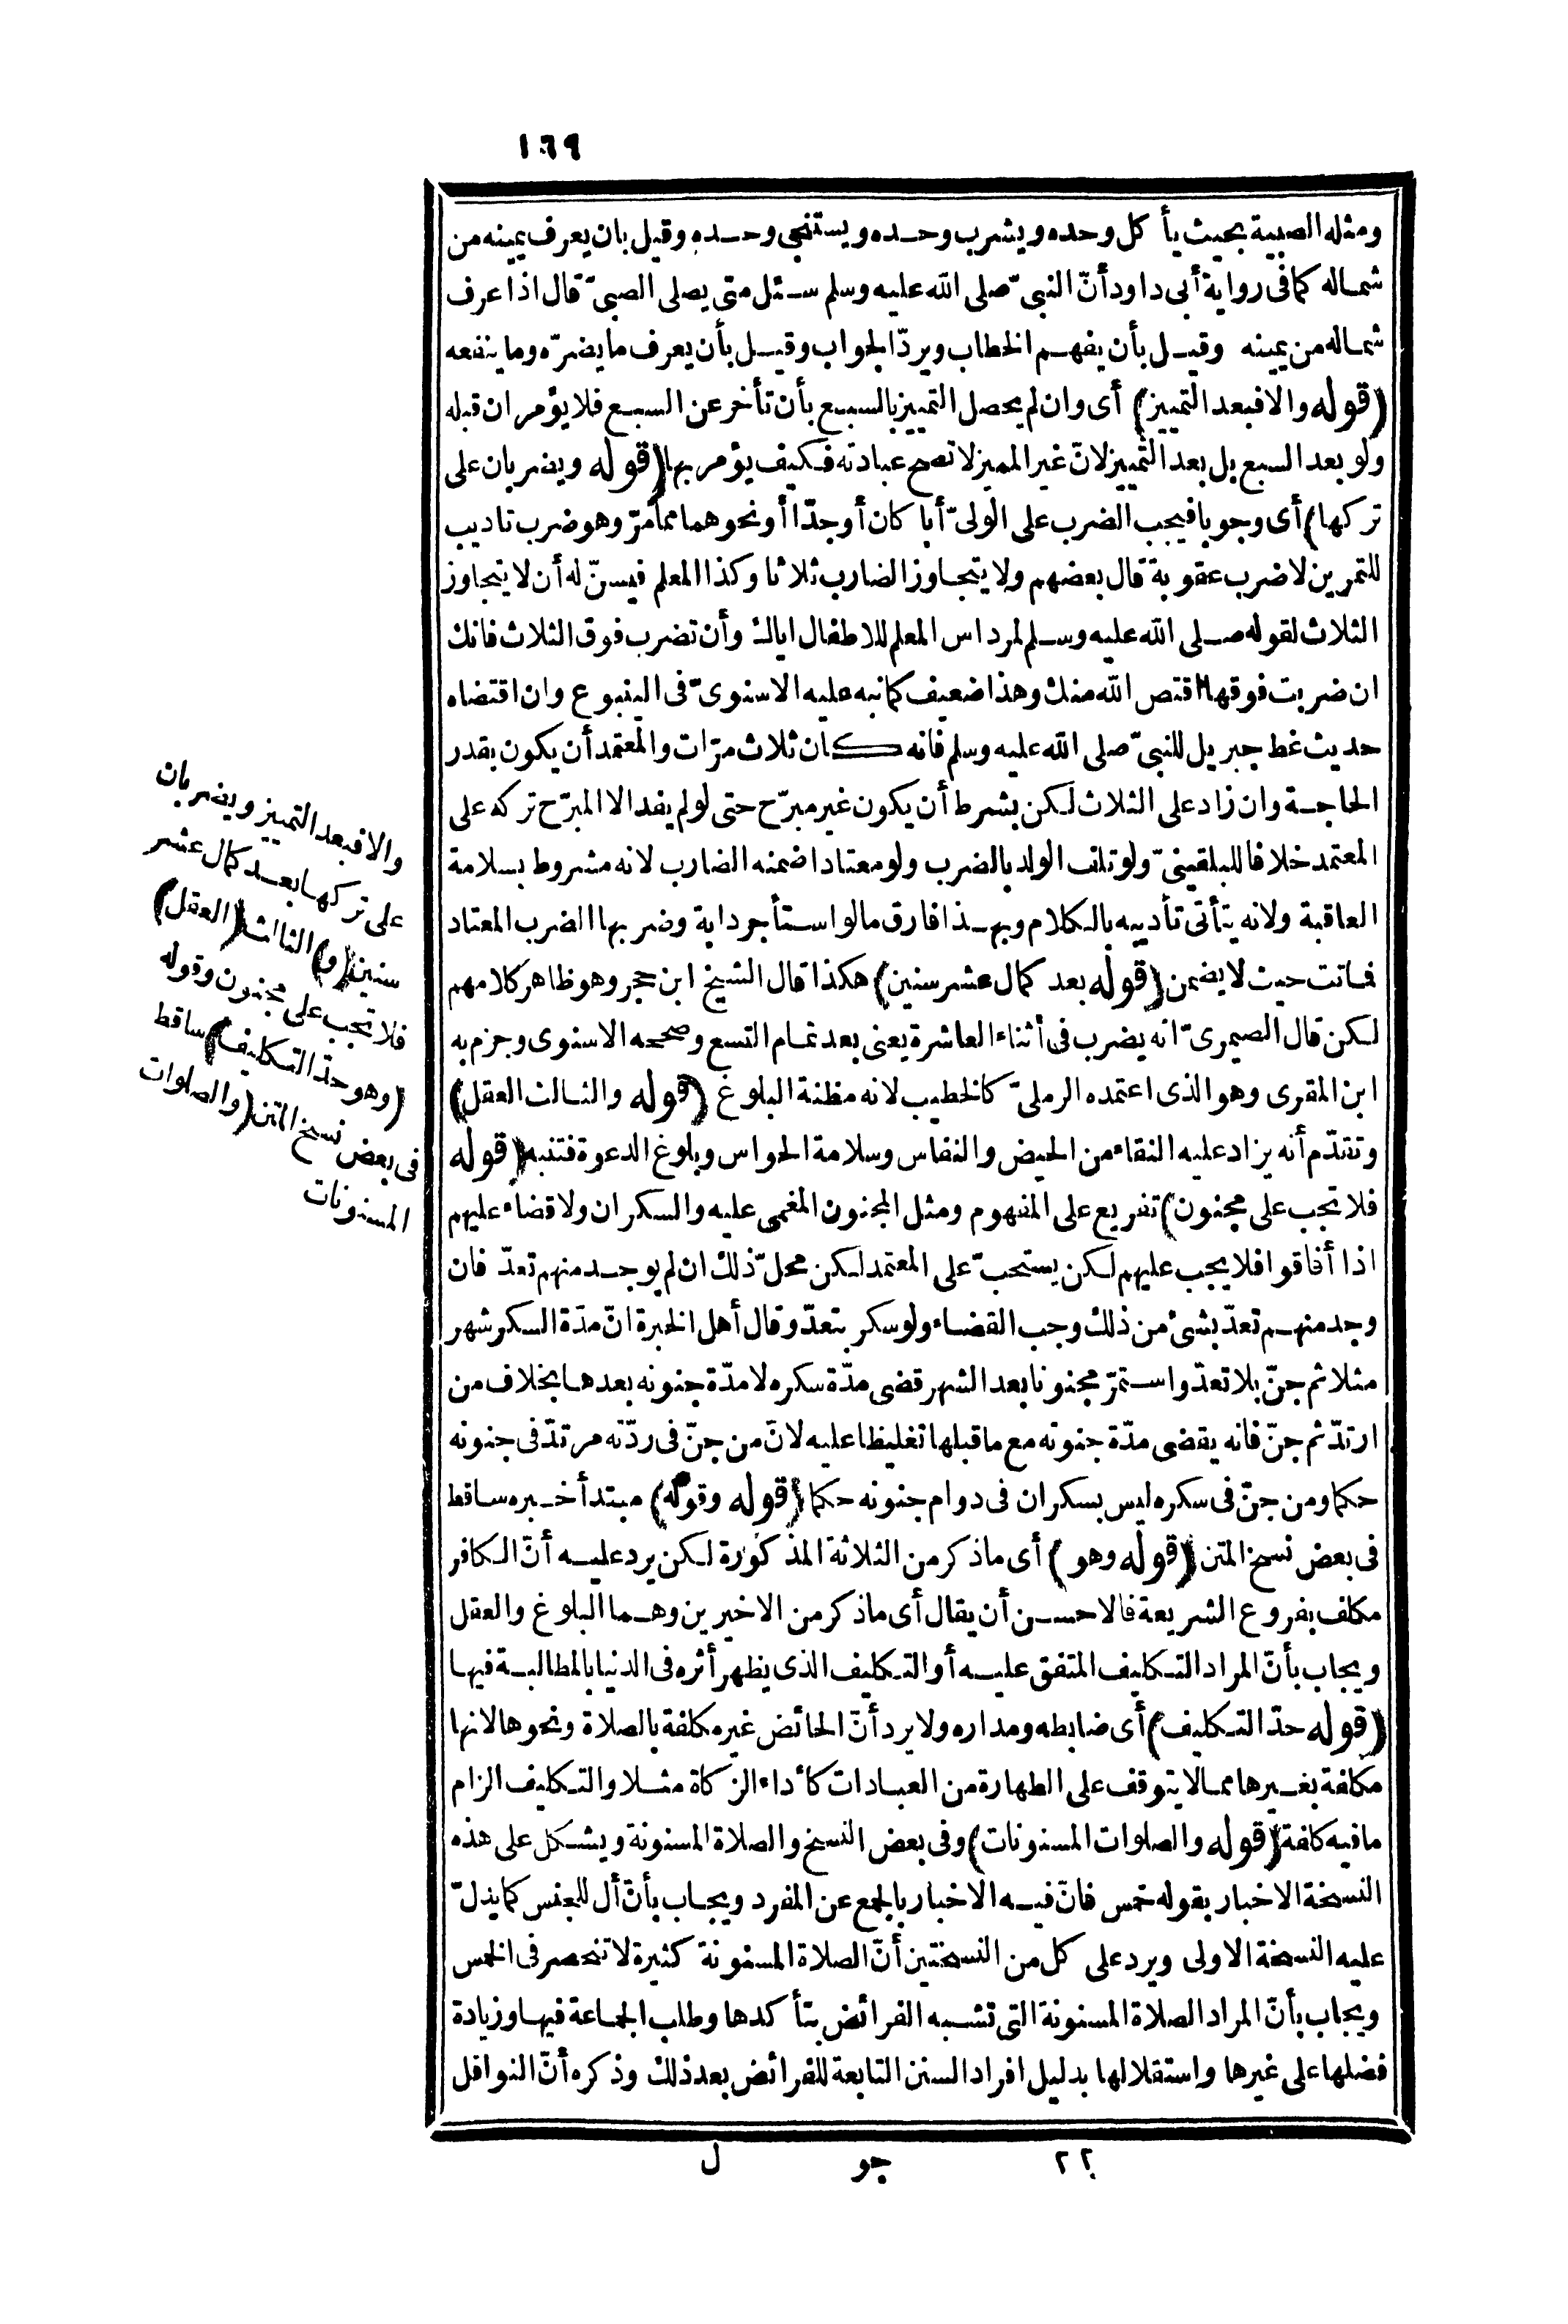 ١٦٩
ومثله الصبية بحيث يأكل وحده ويشرب وحده ويستنجي وحده وقيل بان يعرف يمينه من
شماله كما فى رواية أبى داود أنّ النبىّ صلى الله عليه وسلم سئل متى يصلى الصبىّ قال اذا عرف
شماله من يمينه وقيل بأن يفهم الخطاب ويردّ الجواب وقيل بأن يعرف ما يضرّه وما ينفعه
(قوله والا فبعد التمييز) أى وان لم يحصل التمييز بالسبع بأن تأخر عن السبع فلا يؤمران قبله
ولو بعد السبع بل بعد التمييز لانّ غير المميز لا تصح عبادته فكيف يؤمر بها (قوله ويضربان على
تركها) أى وجوبا فيجب الضرب على الولىّ أبا كان أو جدّا أو نحوهما مما مرّ وهو ضرب تاديب
للتمرين لا ضرب عقوبة قال بعضهم ولا يتجاوز الضارب ثلاثا وكذا المعلم فيسنّ له أن لا يتجاوز
الثلاث لقوله صلى الله عليه وسلم لمرداس المعلم للاطفال اياك وأن تضرب فوق الثلاث فانك
ان ضربت فوقها اقتص الله منك وهذا ضعيف كما نبه عليه الاسنوىّ فى الينبوع وان اقتضاه
حديث غط جبريل للنبىّ صلى الله عليه وسلم فانه كان ثلاث مرّات والمعتمد أن يكون بقدر
الحاجة وان زاد على الثلاث لكن بشرط أن يكون غير مبرّح حتى لو لم يفد الا المبرّح تركه على
المعتمد خلافا للبلقينىّ ولو تلف الولد بالضرب ولو معتادا ضمنه الضارب لانه مشروط بسلامة
العاقبة ولانه يتأتى تأديبه بالكلام وبهذا فارق ما لو استأجر دابة وضربها الضرب المعتاد
فماتت حيث لا يضمن (قوله بعد كمال عشر سنين) هكذا قال الشيخ ابن حجر وهو ظاهر كلامهم
لكن قال الصيمرىّ انه يضرب فى أثناء العاشرة يعنى بعد تمام التسع وصححه الاسنوى وجزم به
ابن المقرى وهو الذى اعتمده الرملىّ كالخطيب لانه مظنة البلوغ (قوله والثالث العقل)
وتقدّم أنه يزاد عليه النقاء من الحيض والنفاس وسلامة الحواس وبلوغ الدعوة فتنبه (قوله
فلا تجب على مجنون) تفريع على المفهوم ومثل المجنون المغمى عليه والسكران ولا قضاء عليهم
اذا أفاقوا فلا يجب عليهم لكن يستحبّ على المعتمد لكن محلّ ذلك ان لم يوجد منهم تعدّ فان
وجد منهم تعدّ بشئ من ذلك وجب القضاء ولو سكر بتعدّ وقال أهل الخبرة انّ مدّة السكر شهر
مثلا ثم جنّ بلا تعدّ واستمرّ مجنونا بعد الشهر قضى مدّة سكره لا مدّة جنونه بعدها بخلاف من
ارتدّ ثم جنّ فانه يقضى مدّة جنونه مع ما قبلها تغليظا عليه لانّ من جنّ فى ردّته مرتدّ فى جنونه
حكما ومن جنّ فى سكره ليس بسكران فى دوام جنونه حكما (قوله وقوله) مبتدأ خبره ساقط
فى بعض نسخ المتن (قوله وهو) أى ما ذكر من الثلاثة المذكورة لكن يرد عليه أنّ الكافر
مكلف بفروع الشريعة فالاحسن أن يقال أى ما ذكر من الاخيرين وهما البلوغ والعقل
ويجاب بأنّ المراد التكليف المتفق عليه أو التكليف الذى يظهر أثره فى الدنيا بالمطالبة فيها
(قوله حدّ التكليف) أى ضابطه ومداره ولا يرد أنّ الحائض غير مكلفة بالصلاة ونحوها لانها
مكلفة بغيرها مما لا يتوقف على الطهارة من العبادات كأداء الزكاة مثلا والتكليف الزام
ما فيه كلفة (قوله والصلوات المسنونات) وفى بعض النسخ والصلاة المسنونة ويشكل على هذه
النسخة الاخبار بقوله خمس فانّ فيه الاخبار بالجمع عن المفرد ويجاب بأنّ أل للجنس كما يدلّ
عليه النسخة الاولى ويرد على كل من النسختين أنّ الصلاة المسنونة كثيرة لا تنحصر فى الخمس
ويجاب بأنّ المراد الصلاة المسنونة التى تشبه الفرائض بتأكدها وطلب الجماعة فيها وزيادة
فضلها على غيرها واستقلالها بدليل افراد السنن التابعة للفرائض بعد ذلك وذكره أنّ النوافل
والا فبعد التمييز ويضربان
على تركها بعد كمال عشر
سنين (و) الثالث (العقل)
فلا تجب على مجنون وقوله
(وهو حدّ التكليف) ساقط
فى بعض نسخ المتن (والصلوات
المسنونات
٢٢ جو ل